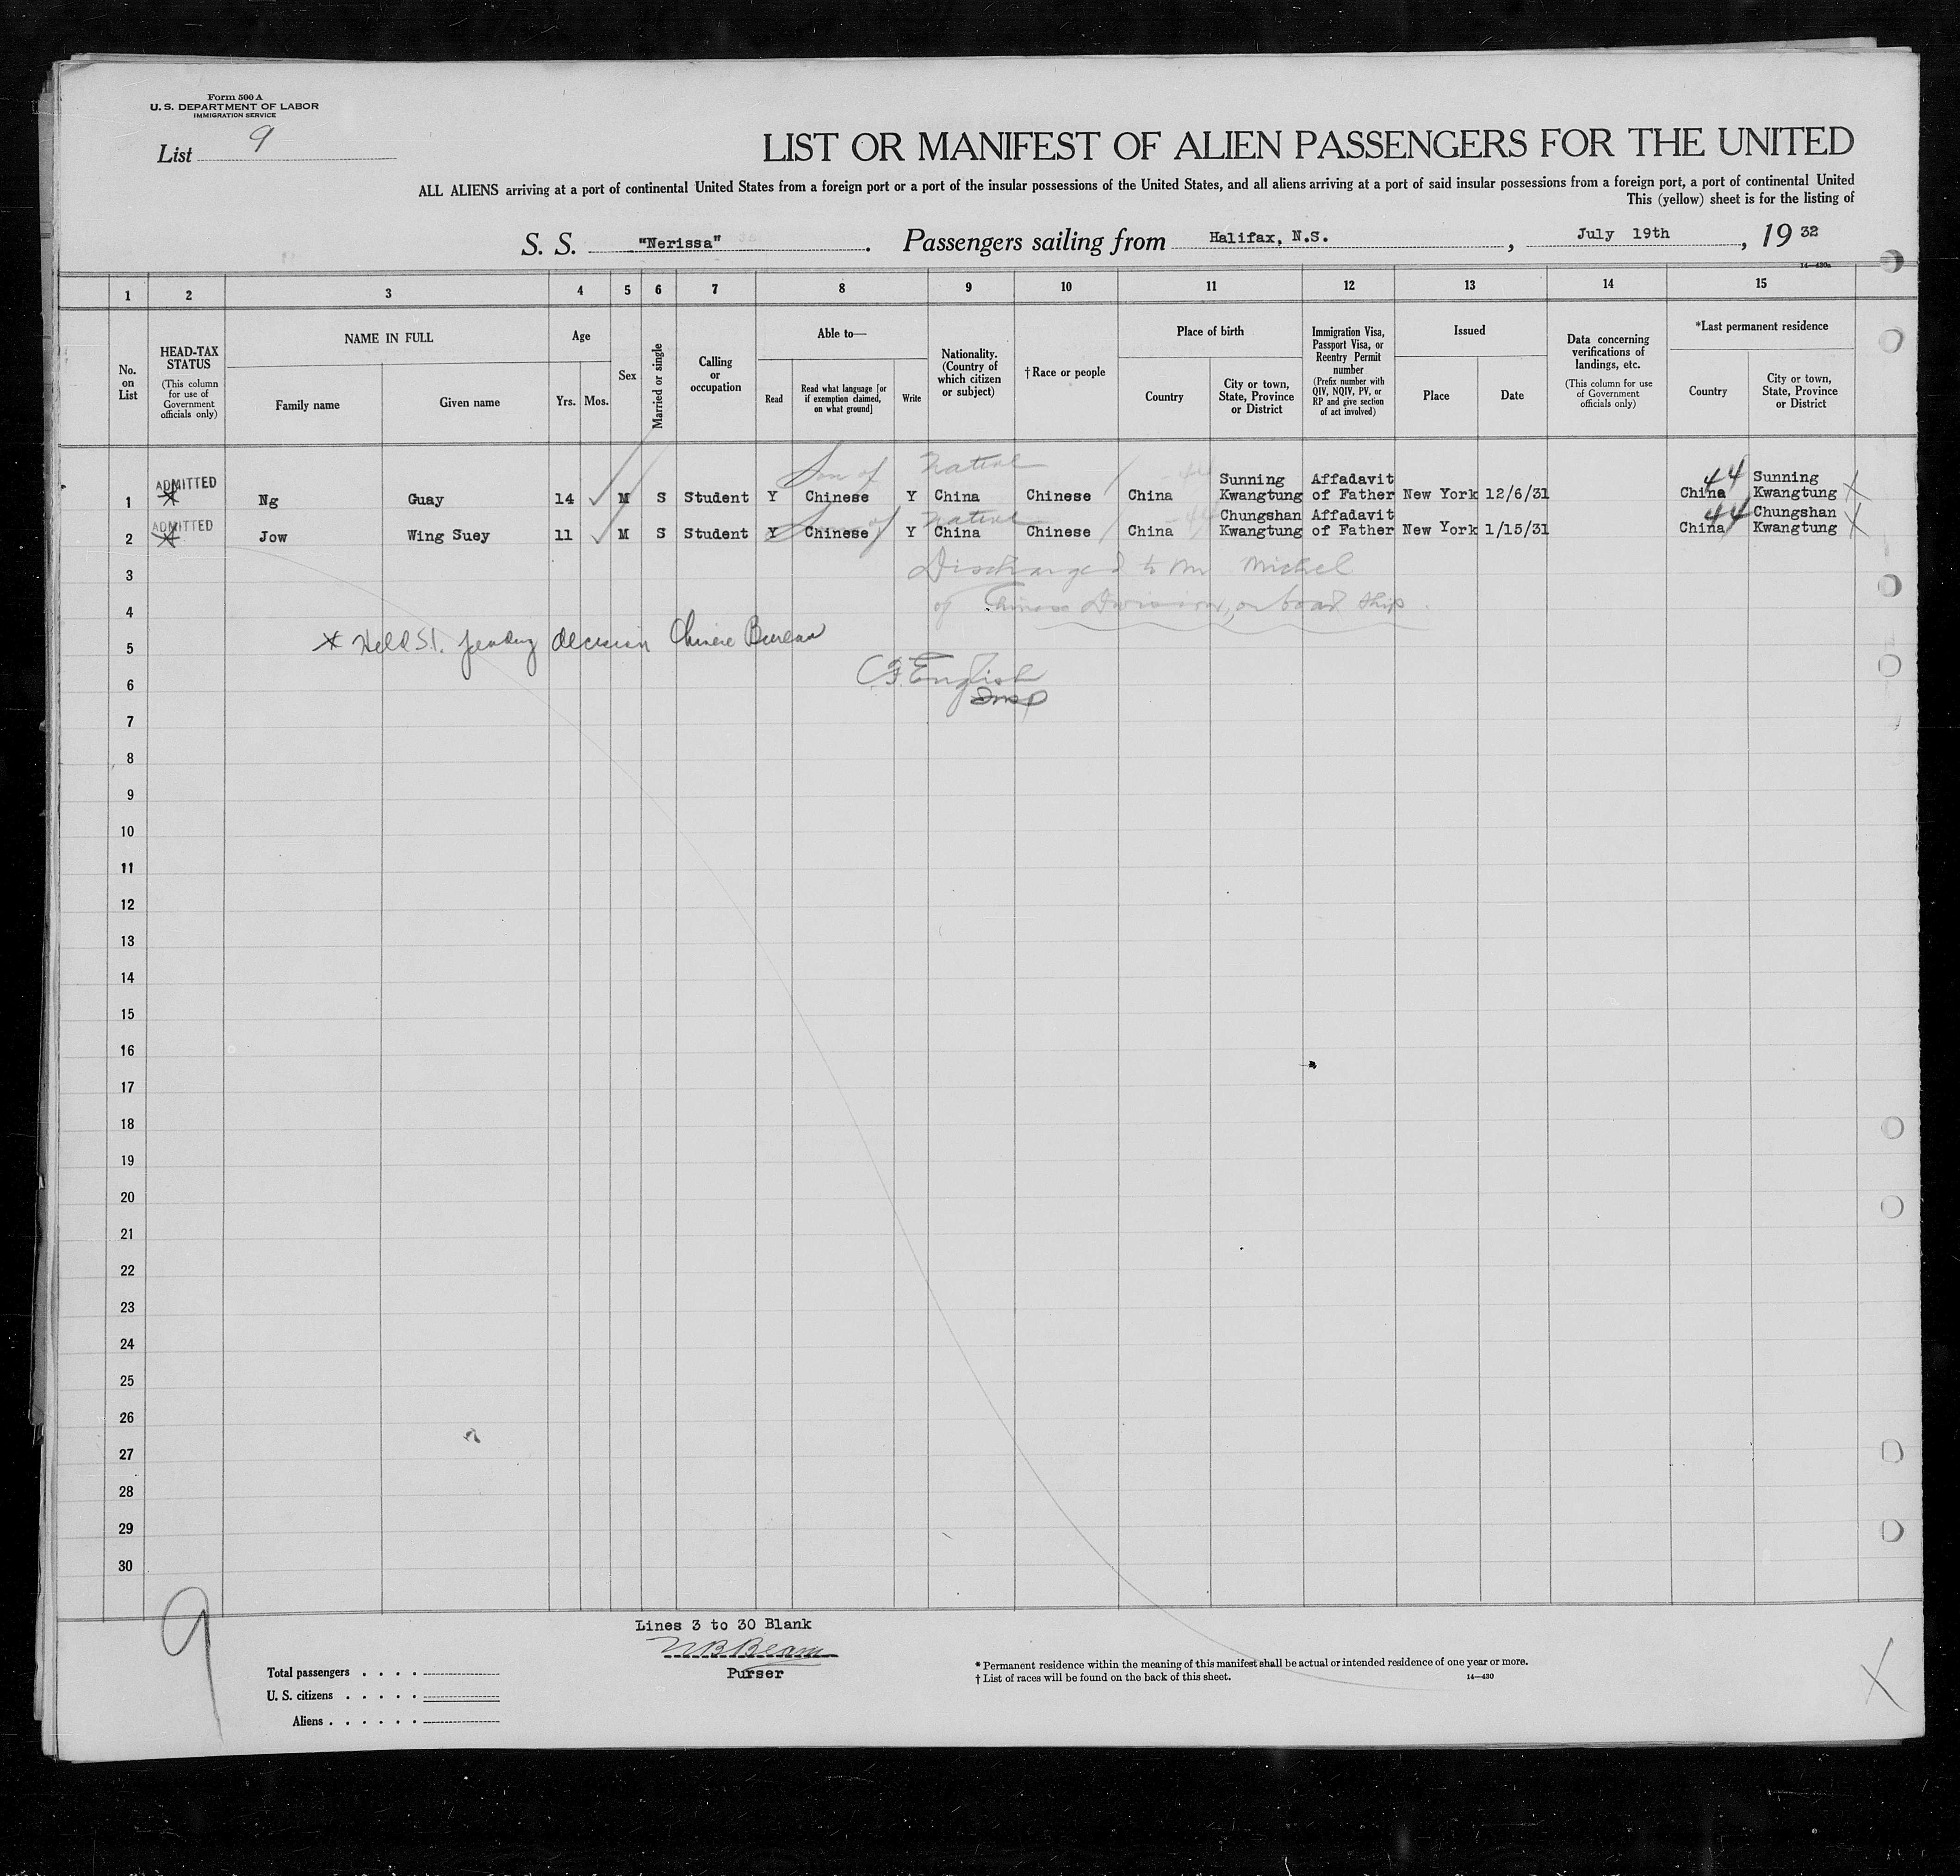 Form 500 A
U. S. DEPARTMENT OF LABOR
IMMIGRATION SERVICE
List 9
LIST OR MANIFEST OF ALIEN PASSENGERS FOR THE UNITED
ALL ALIENS arriving at a port of continental United States from a foreign port or a port of the insular possessions of the United States, and all aliens arriving at a port of said insular possessions from a foreign port, a port of continental United
This (yellow) sheet is for the listing of
S. S. "Nerissa". Passengers sailing from Halifax, N.S., July 19th, 19 32
14—430a
1 2 3 4 5 6 7 8 9 10 11 12 13 14 15
No. on List
HEAD-TAX STATUS
(This column for use of Government officials only)
NAME IN FULL
Family name Given name
Age
Yrs. Mos.
Sex
Married or single
Calling or occupation
Able to—
Read
Read what language [or if exemption claimed, on what ground]
Write
Nationality. (Country of which citizen or subject)
†Race or people
Place of birth
Country
City or town, State, Province or District
Immigration Visa, Passport Visa, or Reentry Permit number
(Prefix number with QIV, NQIV, PV, or RP and give section of act involved)
Issued
Place Date
Data concerning verifications of landings, etc.
(This column for use of Government officials only)
*Last permanent residence
Country
City or town, State, Province or District
Son of Native
ADMITTED Sunning Affadavit 44 Sunning
1 Ng Guay 14 M S Student Y Chinese Y China Chinese China Kwangtung of Father New York 12/6/31 China Kwangtung X
Son of Native
ADMITTED Chungshan Affadavit 44 Chungshan
2 Jow Wing Suey 11 M S Student Y Chinese Y China Chinese China Kwangtung of Father New York 1/15/31 China Kwangtung X
3 Discharged to Mr Michel
4 of Chinese Division, on board ship.
5 * Held S.I. pending decision Chinese Bureau
6 English
Insp
7
8
9
10
11
12
13
14
15
16
17
18
19
20
21
22
23
24
25
26
27
28
29
30
9
Lines 3 to 30 Blank
Purser
Total passengers
U. S. citizens
Aliens
* Permanent residence within the meaning of this manifest shall be actual or intended residence of one year or more.
† List of races will be found on the back of this sheet.
14—430
X